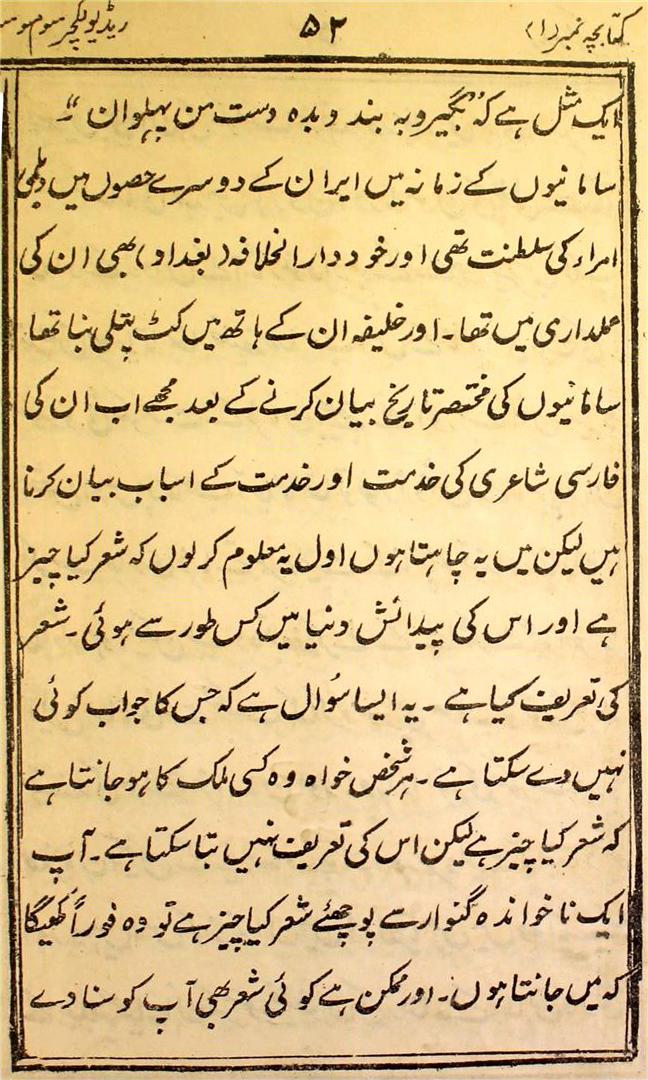 کتابچہ نمبر (۱) ۵۲ ریڈیو لکچر سوم
ایک مثل ہے کہ "بگیر و بہ بند و بدہ دست من پہلوان"۔
سامانیوں کے زمانہ میں ایران کے دوسرے حصوں میں دیلمی
امراء کی سلطنت تھی اور خود دار الخلافہ (بغداد) بھی ان کی
عملداری میں تھا۔ اور خلیفہ ان کے ہاتھ میں کٹ پتلی بنا تھا
سامانیوں کی مختصر تاریخ بیان کرنے کے بعد مجھے اب ان کی
فارسی شاعری کی خدمت اور خدمت کے اسباب بیان کرنا
ہیں لیکن میں یہ چاہتا ہوں اول یہ معلوم کر لوں کہ شعر کیا چیز
ہے اور اس کی پیدائش دنیا میں کس طور سے ہوئی۔ شعر
کی تعریف کیا ہے۔ یہ ایسا سؤال ہے کہ جس کا جواب کوئی
نہیں دے سکتا ہے۔ ہر شخص خواہ وہ کسی ملک کا ہو جانتا ہے
کہ شعر کیا چیز ہے لیکن اس کی تعریف نہیں بتا سکتا ہے۔ آپ
ایک ناخواندہ گنوار سے پوچھئے شعر کیا چیز ہے تو وہ فوراً کھیگا
کہ میں جانتا ہوں۔ اور ممکن ہے کوئی شعر بھی آپ کو سنا دے